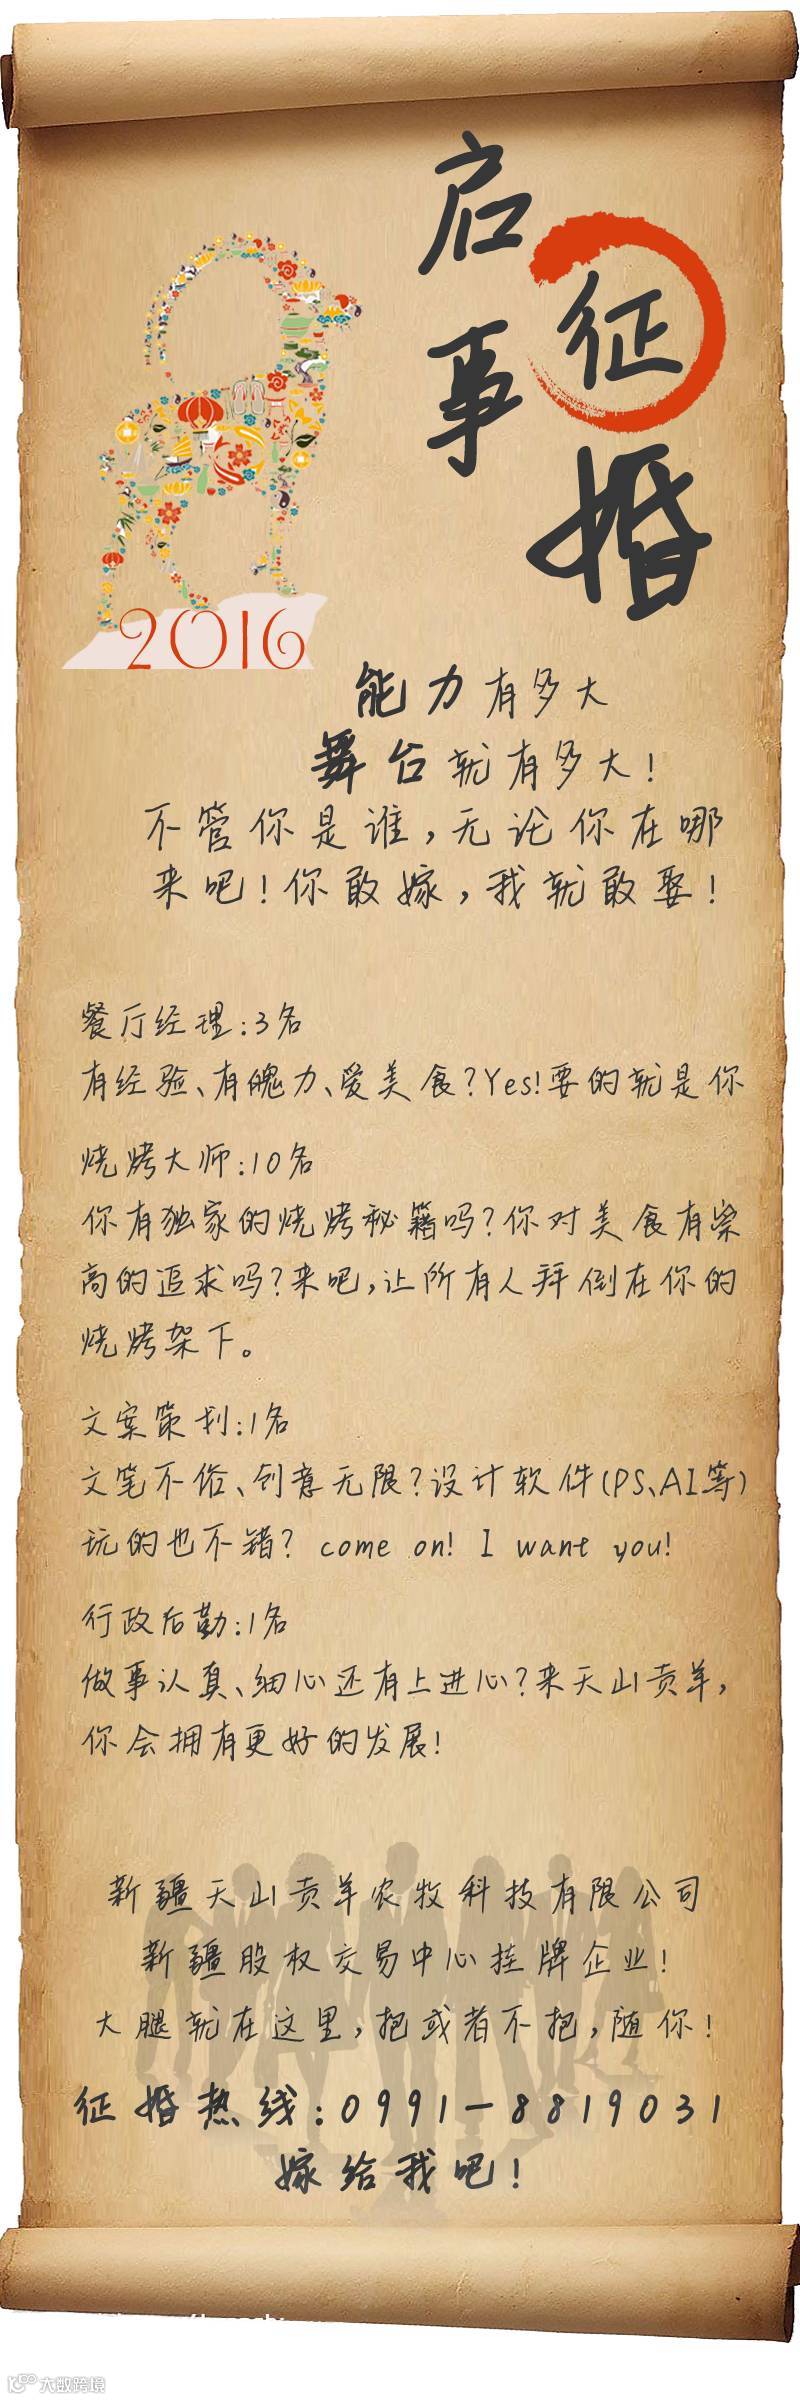 征婚
启事
2016
能力有多大
舞台就有多大！
不管你是谁，无论你在哪
来吧！你敢嫁，我就敢娶！
餐厅经理：3名
有经验、有魄力、爱美食？Yes！要的就是你
烧烤大师：10名
你有独家的烧烤秘籍吗？你对美食有崇
高的追求吗？来吧，让所有人拜倒在你的
烧烤架下。
文案策划：1名
文笔不俗、创意无限？设计软件(PS、AI等)
玩的也不错？ come on! I want you!
行政后勤：1名
做事认真、细心还有上进心？来天山贡羊，
你会拥有更好的发展！
新疆天山贡羊农牧科技有限公司
新疆股权交易中心挂牌企业！
大腿就在这里，把或者不把，随你！
征婚热线：0991-8819031
嫁给我吧！
大数跨境